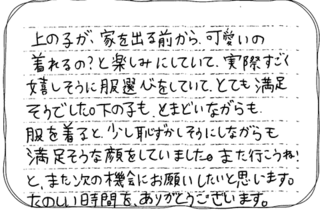 上の子が、家を出る前から、可愛いの
着れるの？と楽しみにしていて、実際すごく
嬉しそうに服選びをしていて、とても満足
そうでした。下の子も、とまどいながらも
服を着ると、少し恥ずかしそうにしながらも
満足そうな顔をしていました。また行こうね！
と、また次の機会にお願いしたいと思います。
たのしい時間を、ありがとうございます。